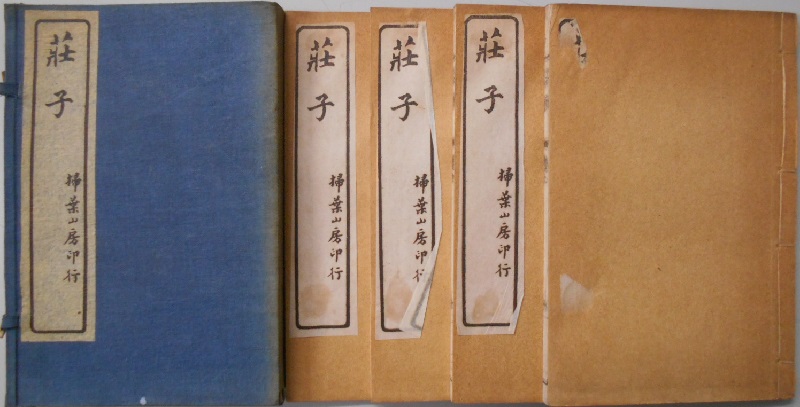 莊子
掃葉山房印行
莊子
掃葉山房印行
莊子
掃葉山房印
莊子
掃葉山房印行